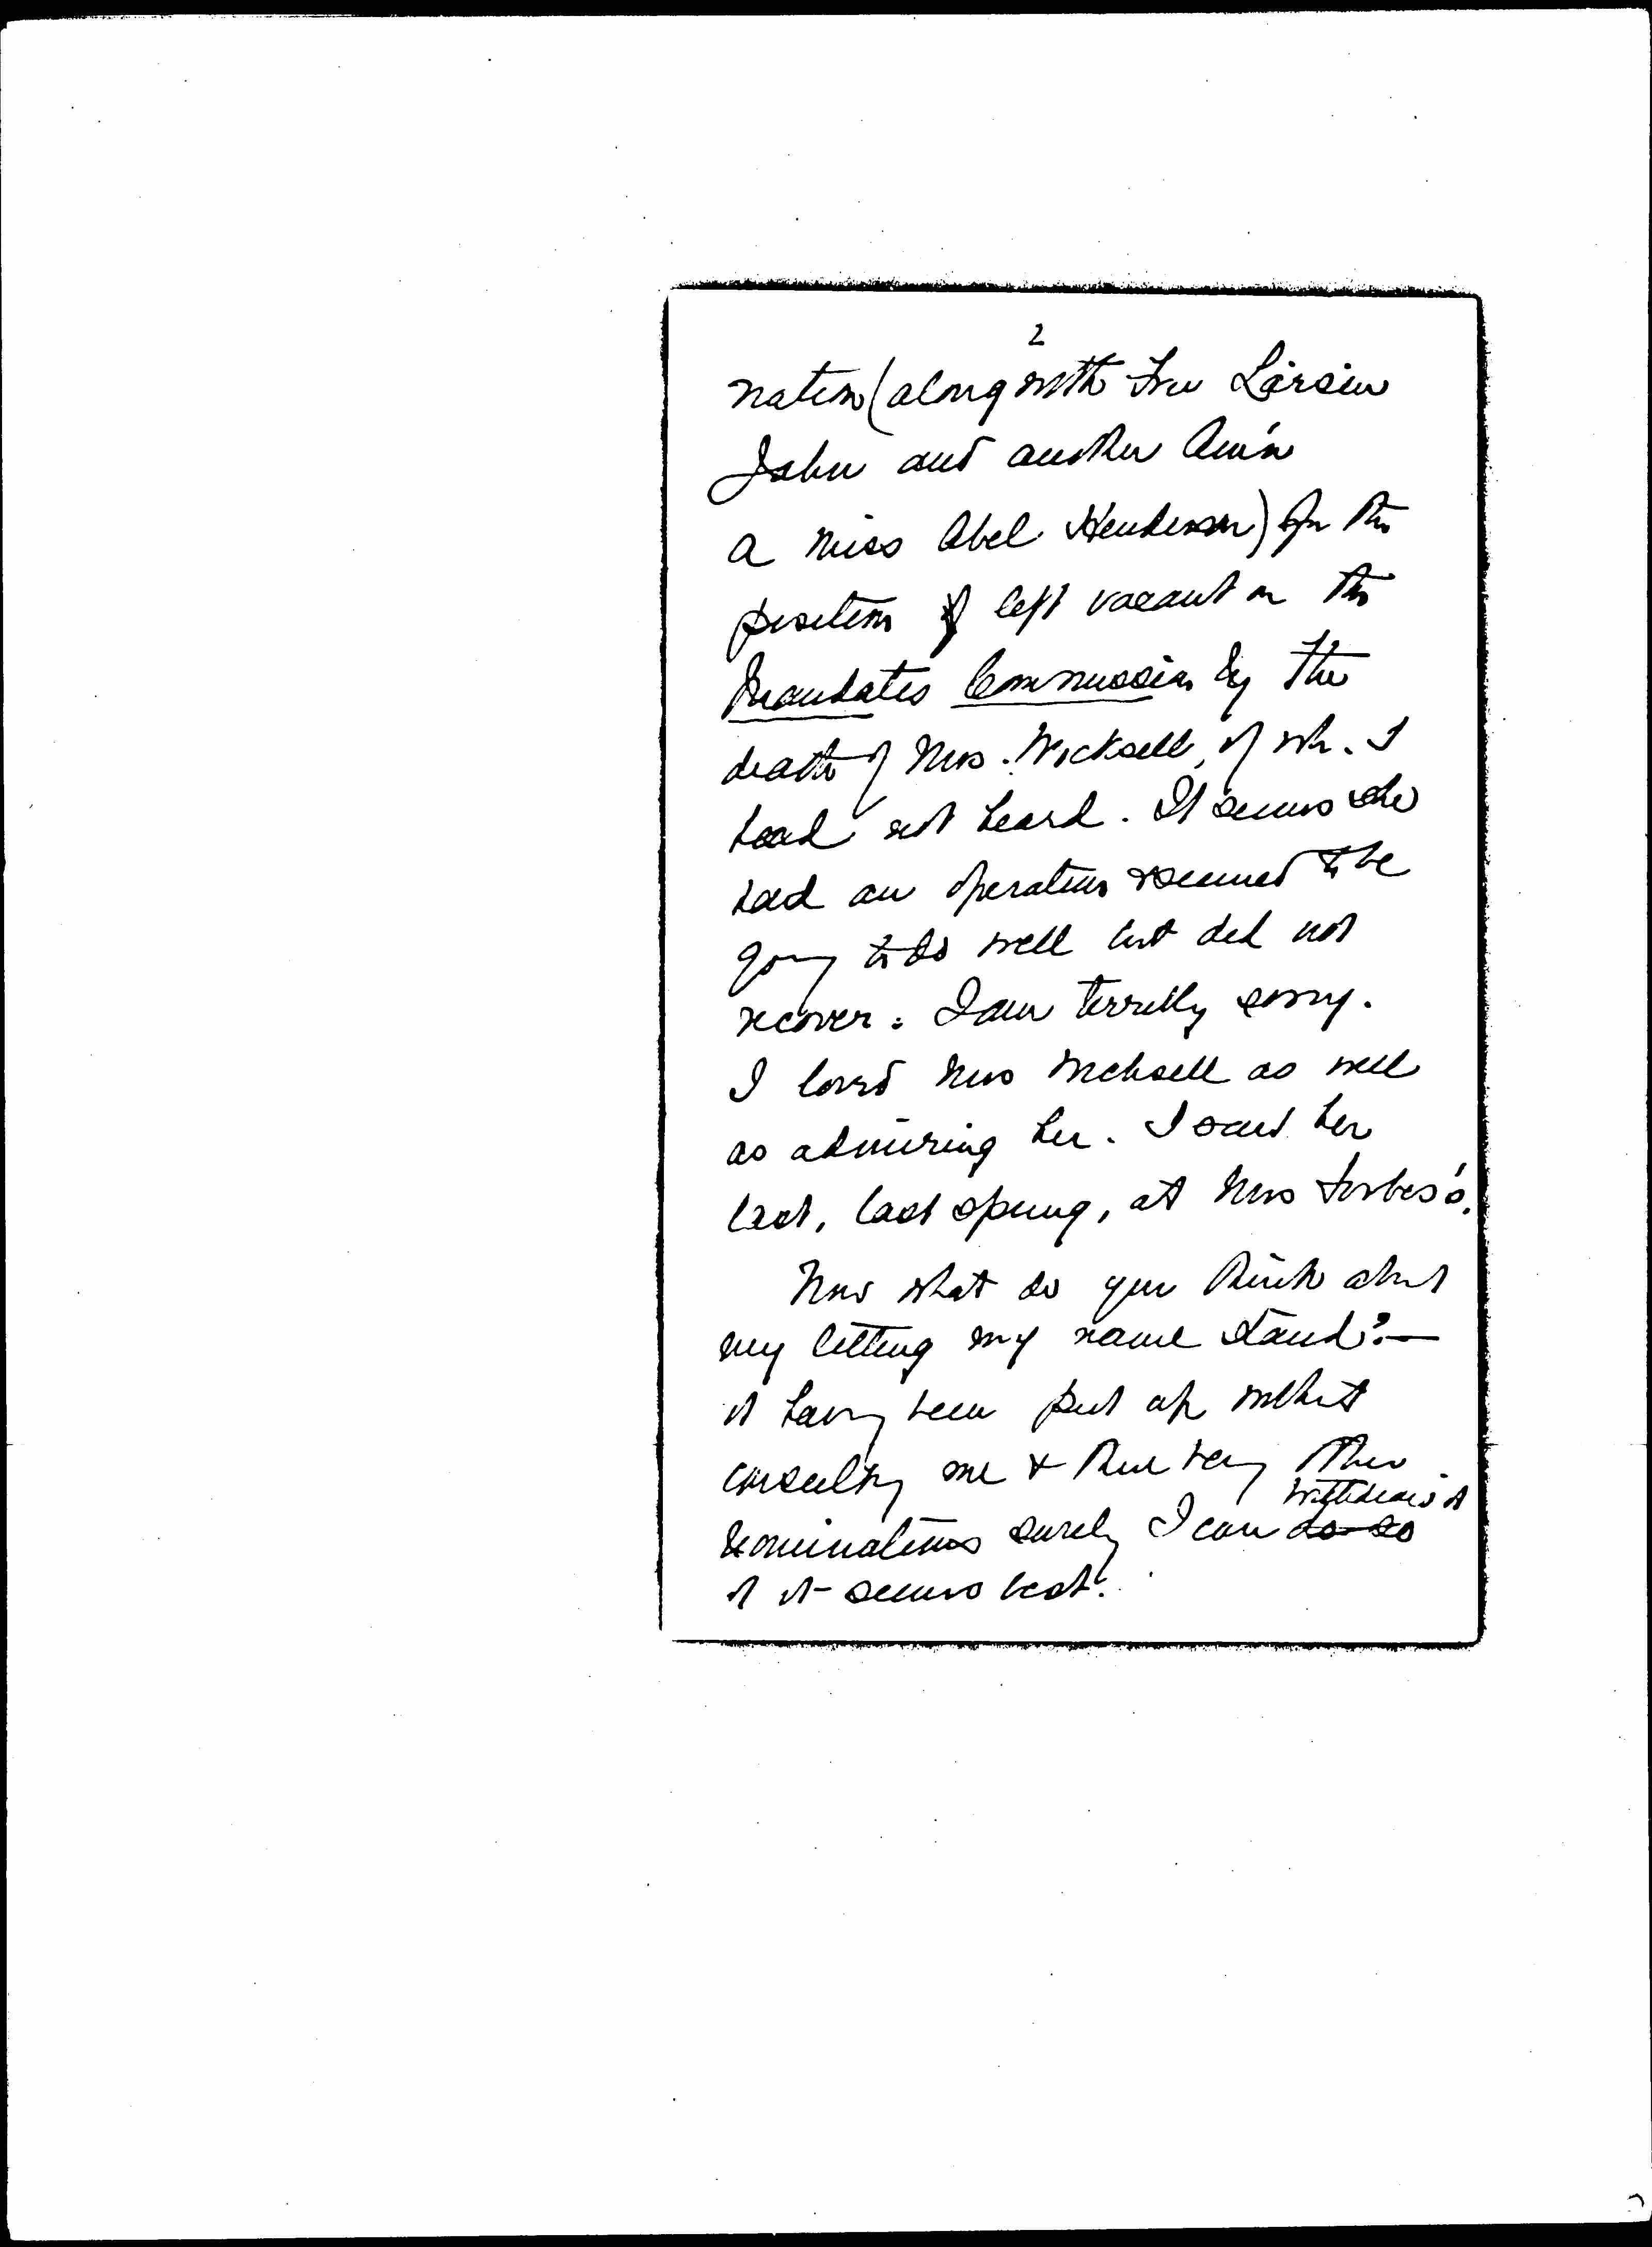 2
nation (along with Fru Larsen
John and another Am'n
a Miss Abel Henderson) for the
position left vacant on the
Mandates Commission by the
death of Mrs. Wicksell, of wh. I
had not heard. It seems she
had an operation & seemed to be
going to do well but did not
recover. I am terribly sorry.
I loved Mrs Wicksell as well
as admiring her. I saw her
last, last spring, at Mrs Forbes's.
Now what do you think about
my letting my name stand? —
it having been put up without
consulting me & there being other
nominations surely I can do so withdraw it
if it seems best.